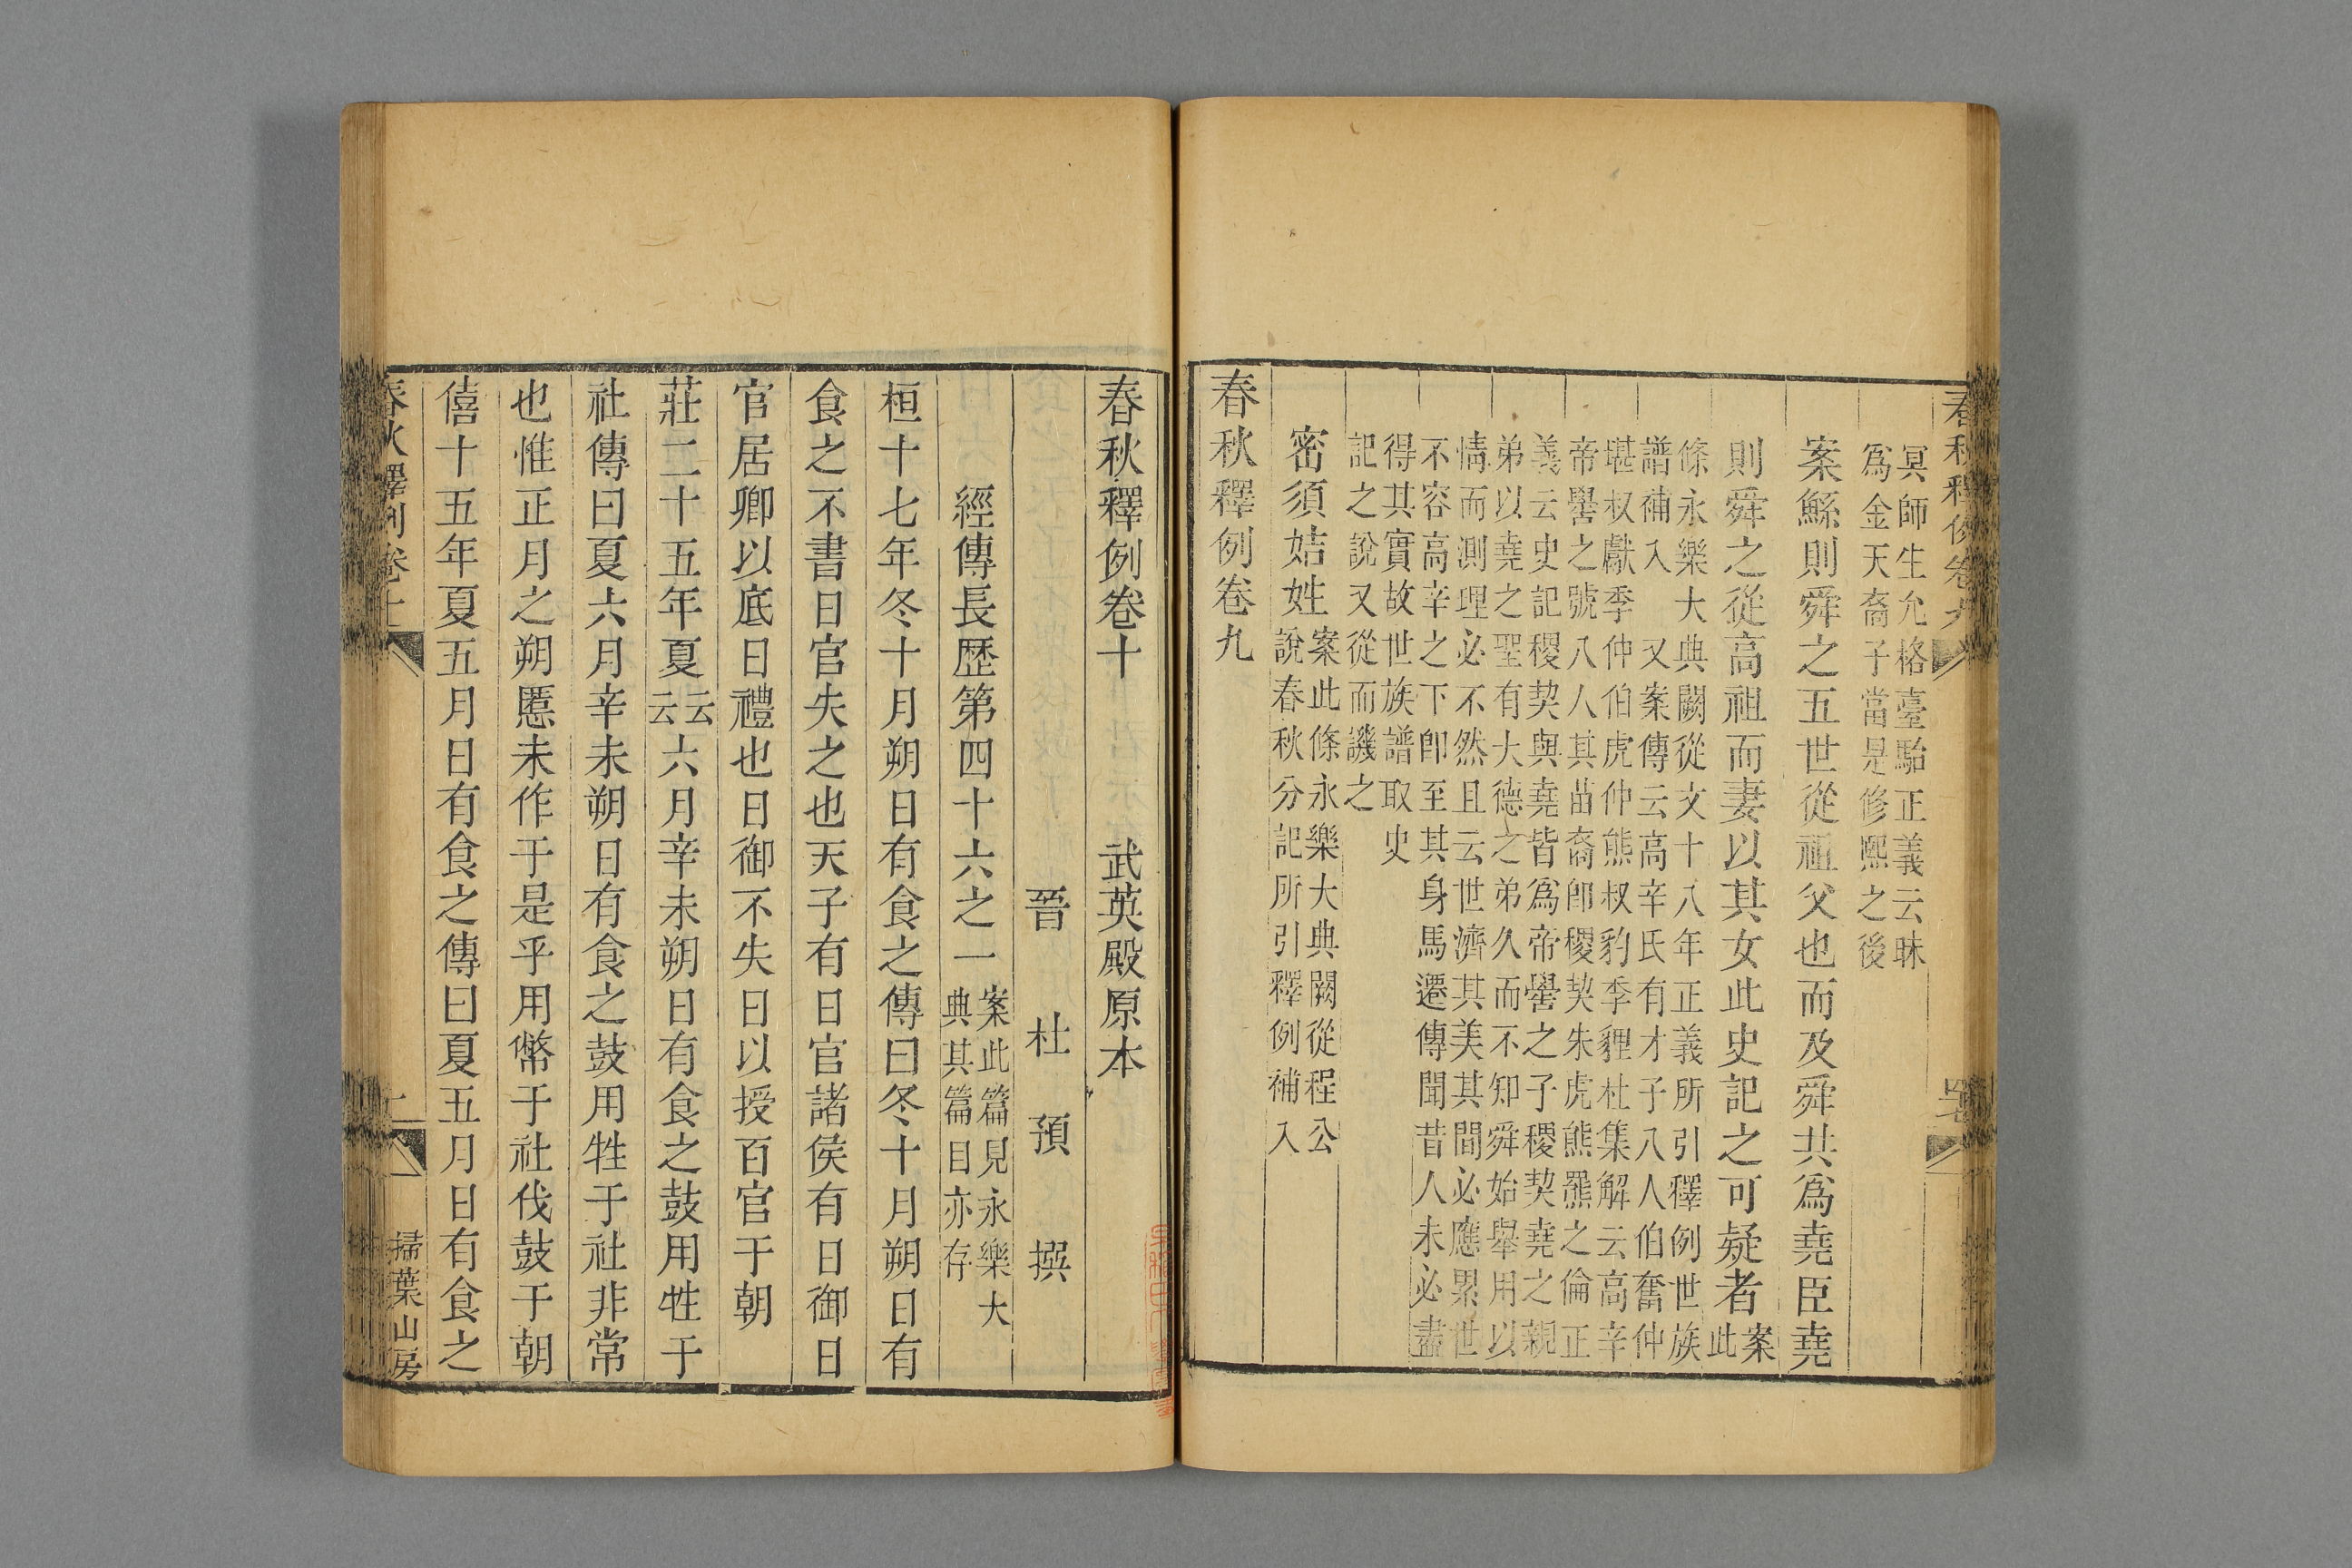 冥師生允格臺駘正義云昧
爲金天裔子當是修熙之後
案鯀則舜之五世從祖父也而及舜共爲堯臣堯
則舜之從高祖而妻以其女此史記之可疑者案此
條永樂大典闕從文十八年正義所引釋例世族
譜補入 又案傳云高辛氏有才子八人伯奮仲
堪叔獻季仲伯虎仲熊叔豹季貍杜集解云高辛
帝嚳之號八人其苗裔卽稷契朱虎熊羆之倫正
義云史記稷契與堯皆爲帝嚳之子稷契堯之親
弟以堯之聖有大德之弟久而不知舜始舉用以
情而測理必不然且云世濟其美其間必應累世
不容高辛之下卽至其身馬遷傳聞昔人未必盡
得其實故世族譜取史
記之說又從而譏之
密須姞姓案此條永樂大典闕從程公
說春秋分記所引釋例補入
春秋釋例卷九
春秋釋例卷十 武英殿原本
晉 杜 預 撰
經傳長歷第四十六之一案此篇見永樂大
典其篇目亦存
桓十七年冬十月朔日有食之傳曰冬十月朔日有
食之不書日官失之也天子有日官諸侯有日御日
官居卿以底日禮也日御不失日以授百官于朝
莊二十五年夏云云六月辛未朔日有食之鼓用牲于
社傳曰夏六月辛未朔日有食之鼓用牲于社非常
也惟正月之朔慝未作于是乎用幣于社伐鼓于朝
僖十五年夏五月日有食之傳曰夏五月日有食之
掃葉山房